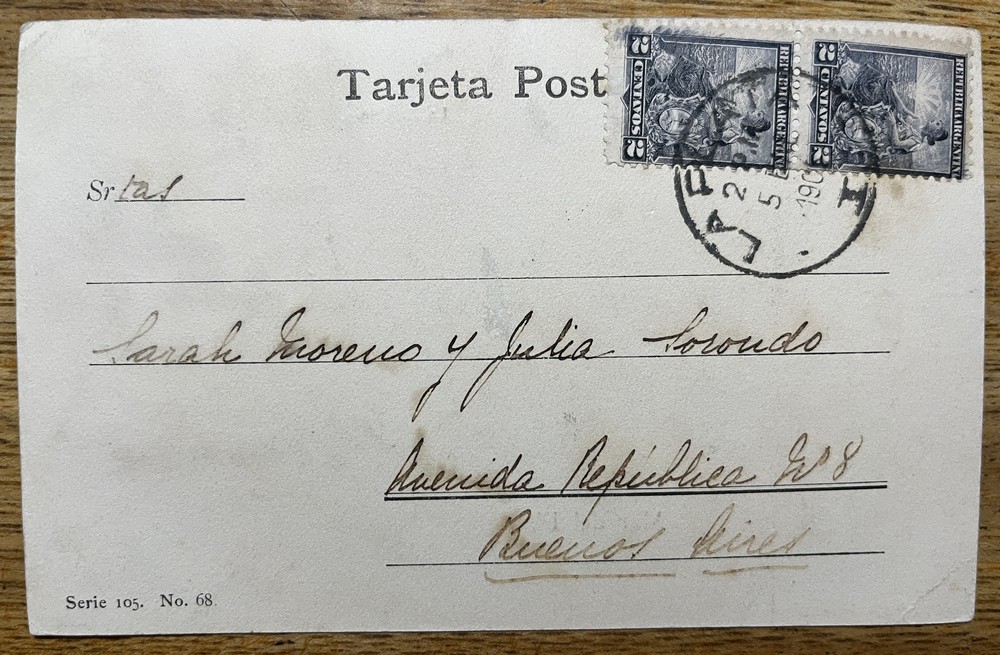 Tarjeta Post
2 CENTAVOS 2
REPUBLICA ARGENTINA
2 CENTAVOS 2
REPUBLICA ARGENTINA
LA P
2
5
190
Srtas
Sarah Moreno y Julia Sorondo
Avenida República Nº 8
Buenos Aires
Serie 105. No. 68